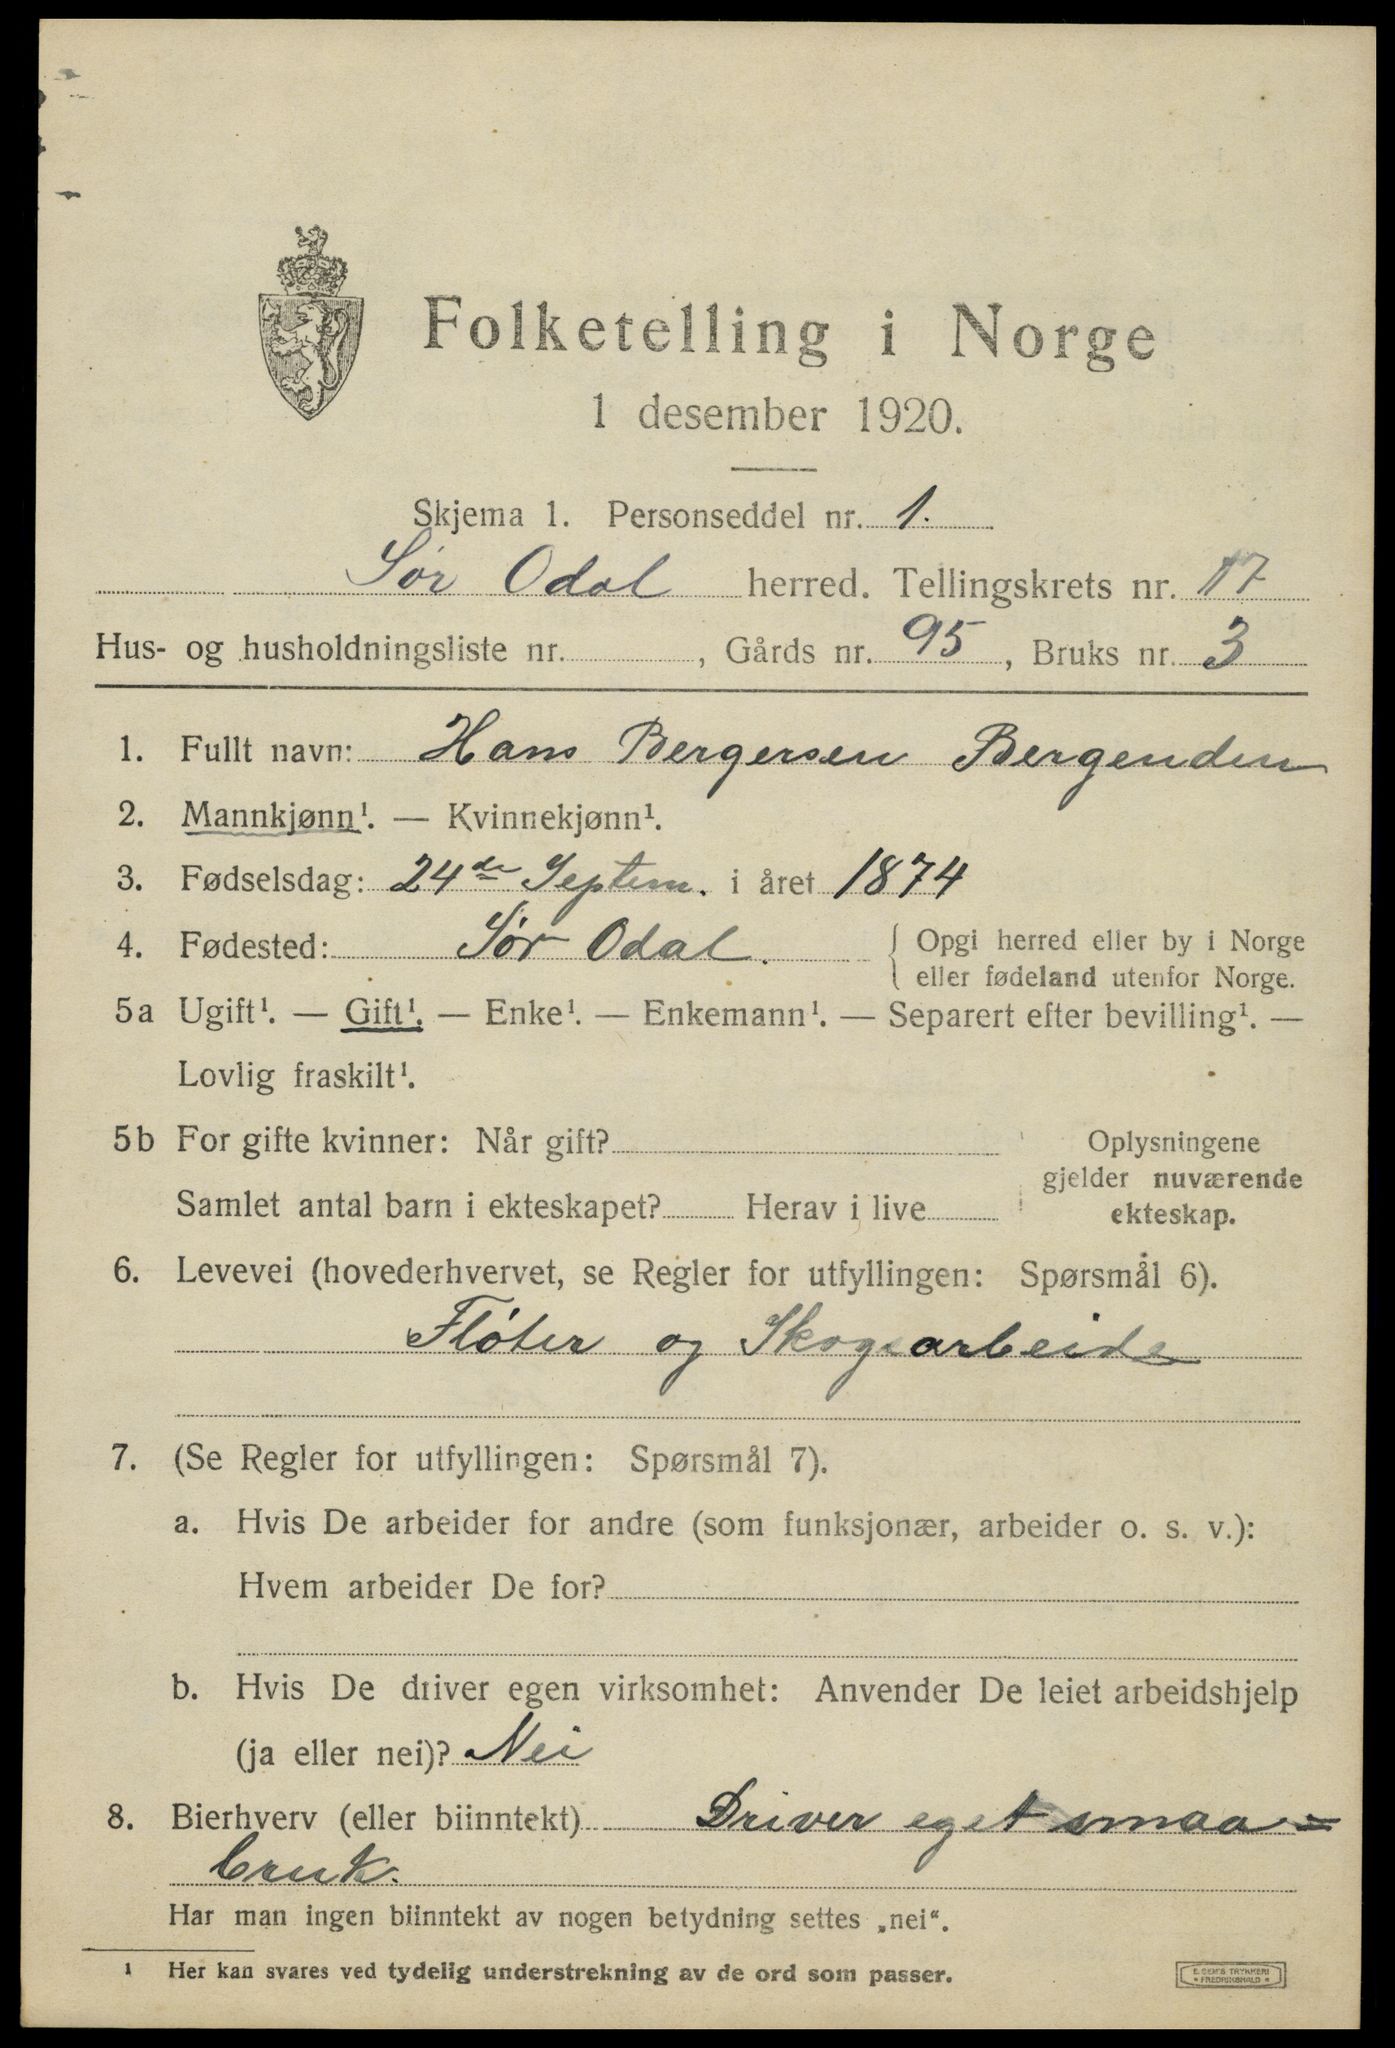 Folketelling i Norge
1 desember 1920.
Skjema 1. Personseddel nr. 1.
Sør Odal herred. Tellingskrets nr. 17
Hus- og husholdningsliste nr. , Gårds nr. 95, Bruks nr. 3
1. Fullt navn: Hans Bergersen Bergenden
2. Mannkjønn¹. — Kvinnekjønn¹.
3. Fødselsdag: 24de Septem. i året 1874
4. Fødested: Sør Odal. { Opgi herred eller by i Norge
eller fødeland utenfor Norge.
5a Ugift¹. — Gift¹. — Enke¹. — Enkemann¹. — Separert efter bevilling¹. —
Lovlig fraskilt¹.
5b For gifte kvinner: Når gift?
Samlet antal barn i ekteskapet? Herav i live
Oplysningene
gjelder nuværende
ekteskap.
6. Levevei (hovederhvervet, se Regler for utfyllingen: Spørsmål 6).
Fløter og Skogsarbeide
7. (Se Regler for utfyllingen: Spørsmål 7).
a. Hvis De arbeider for andre (som funksjonær, arbeider o. s. v.):
Hvem arbeider De for?
b. Hvis De driver egen virksomhet: Anvender De leiet arbeidshjelp
(ja eller nei)? Nei
8. Bierhverv (eller biinntekt) Driver eget smaa=
bruk.
Har man ingen biinntekt av nogen betydning settes „nei“.
¹ Her kan svares ved tydelig understrekning av de ord som passer.
E. SEM'S TRYKKERI
* FREDRIKSHALD *